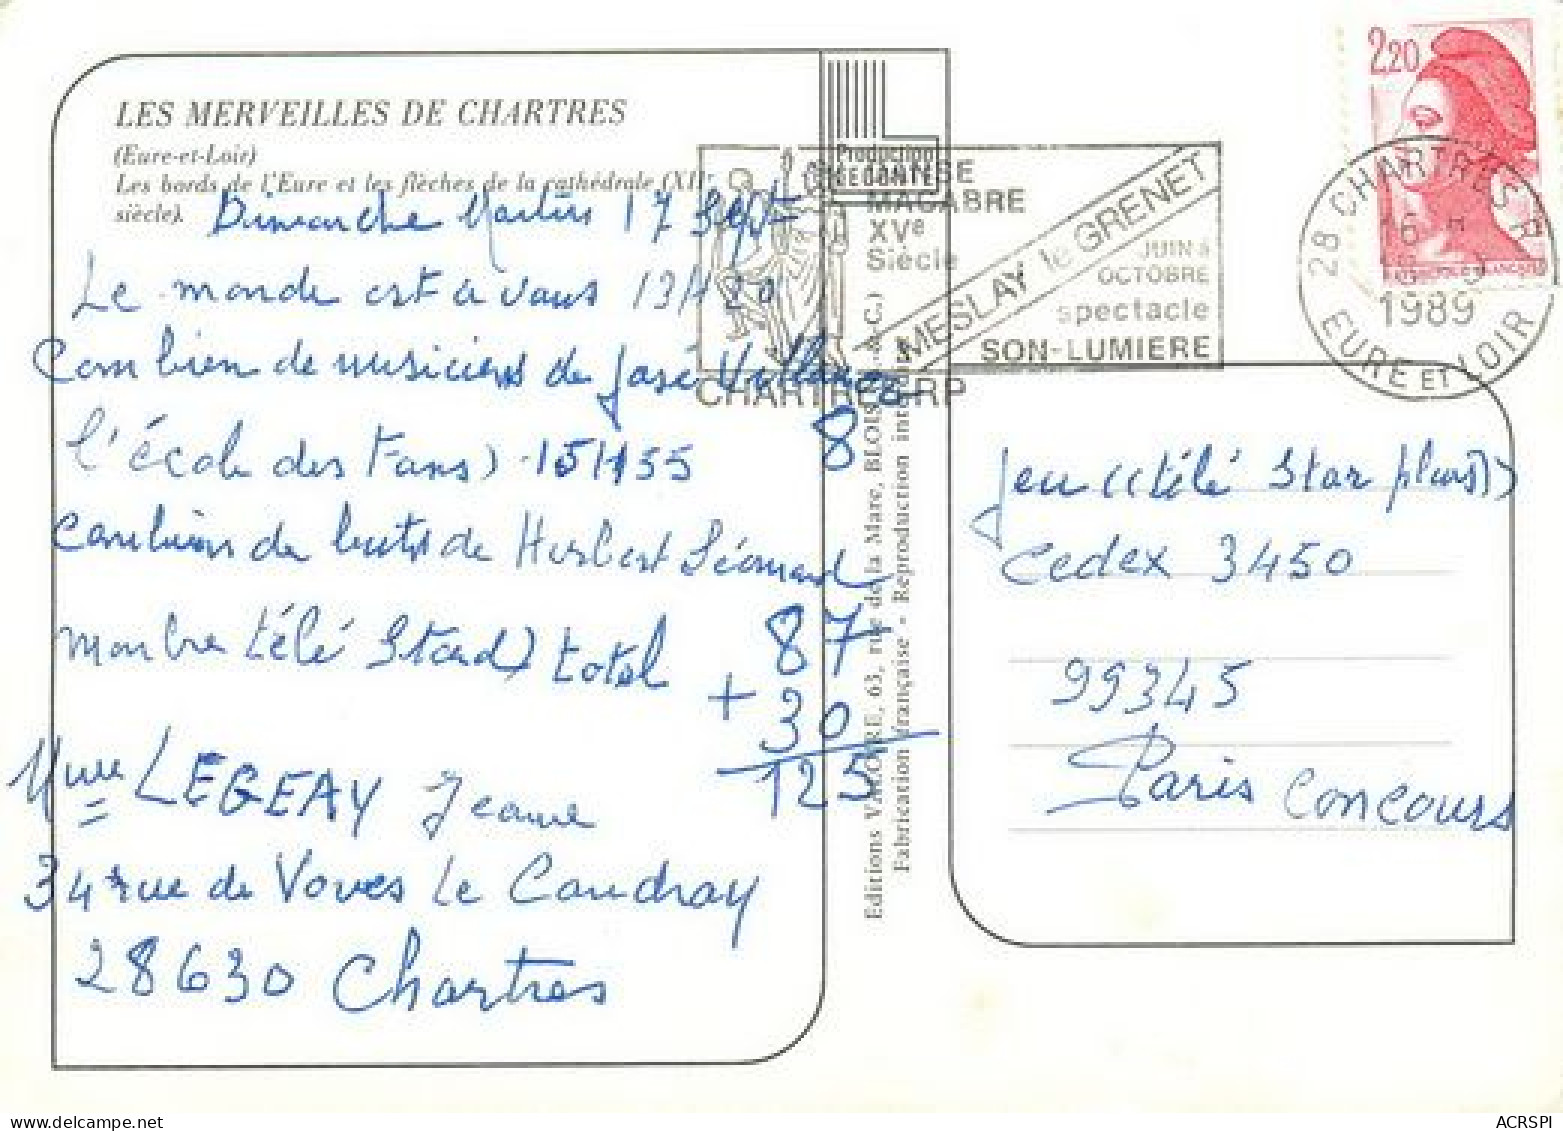 LES MERVEILLES DE CHARTRES
(Eure-et-Loir)
Les bords de l'Eure et les flèches de la cathédrale (XIIe
siècle).
Dimanche Martin 17 Sept
Le monde est à vous 13H20
Combien de musiciens de José
8
l'école des Fans) 15H55
Combien de buts de Herbert Léonard
montre télé Star) total
87
+ 30
125
Mme LEGEAY Jeanne
34 rue de Voves Le Coudray
28630 Chartres
Production
LECONTE
DANSE
MACABRE
XVe
Siècle
MESLAY le GRENET
JUIN à
OCTOBRE
spectacle
SON-LUMIERE
CHARTRES RP
Editions VALOIRE, 63, rue de la Mare, BLOIS
Fabrication française - Reproduction interdite
2,20
28 CHARTRES R.P.
16 H
1989
EURE ET LOIR
Jeu ((télé Star plus))
Cedex 3450
99345
Paris Concours
ACRSPI